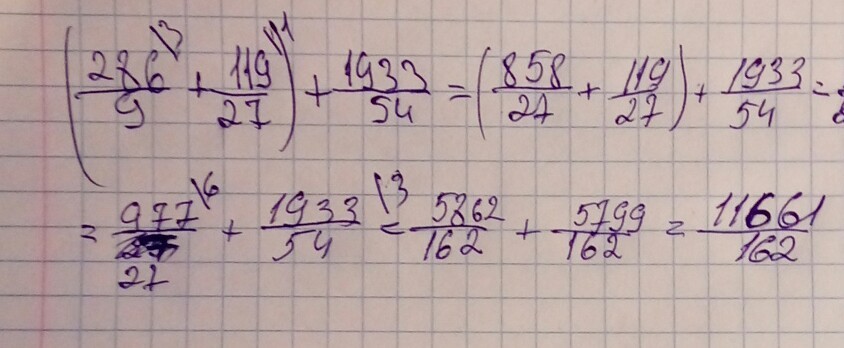 (286/9\3 + 119/27\1) + 1933/54 = (858/27 + 119/27) + 1933/54 =
= 977/27\6 + 1933/54\3 = 5862/162 + 5799/162 = 11661/162